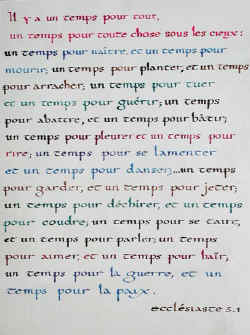 Il y a un temps pour tout,
un temps pour toute chose sous les cieux:
un temps pour naître, et un temps pour
mourir; un temps pour planter, et un temps
pour arracher; un temps pour tuer
et un temps pour guérir; un temps
pour abattre, et un temps pour bâtir;
un temps pour pleurer et un temps pour
rire; un temps pour se lamenter
et un temps pour danser;...un temps
pour garder, et un temps pour jeter;
un temps pour déchirer, et un temps
pour coudre; un temps pour se taire,
et un temps pour parler; un temps
pour aimer, et un temps pour haïr;
un temps pour la guerre, et un
temps pour la paix.
ecclésiaste 3.1